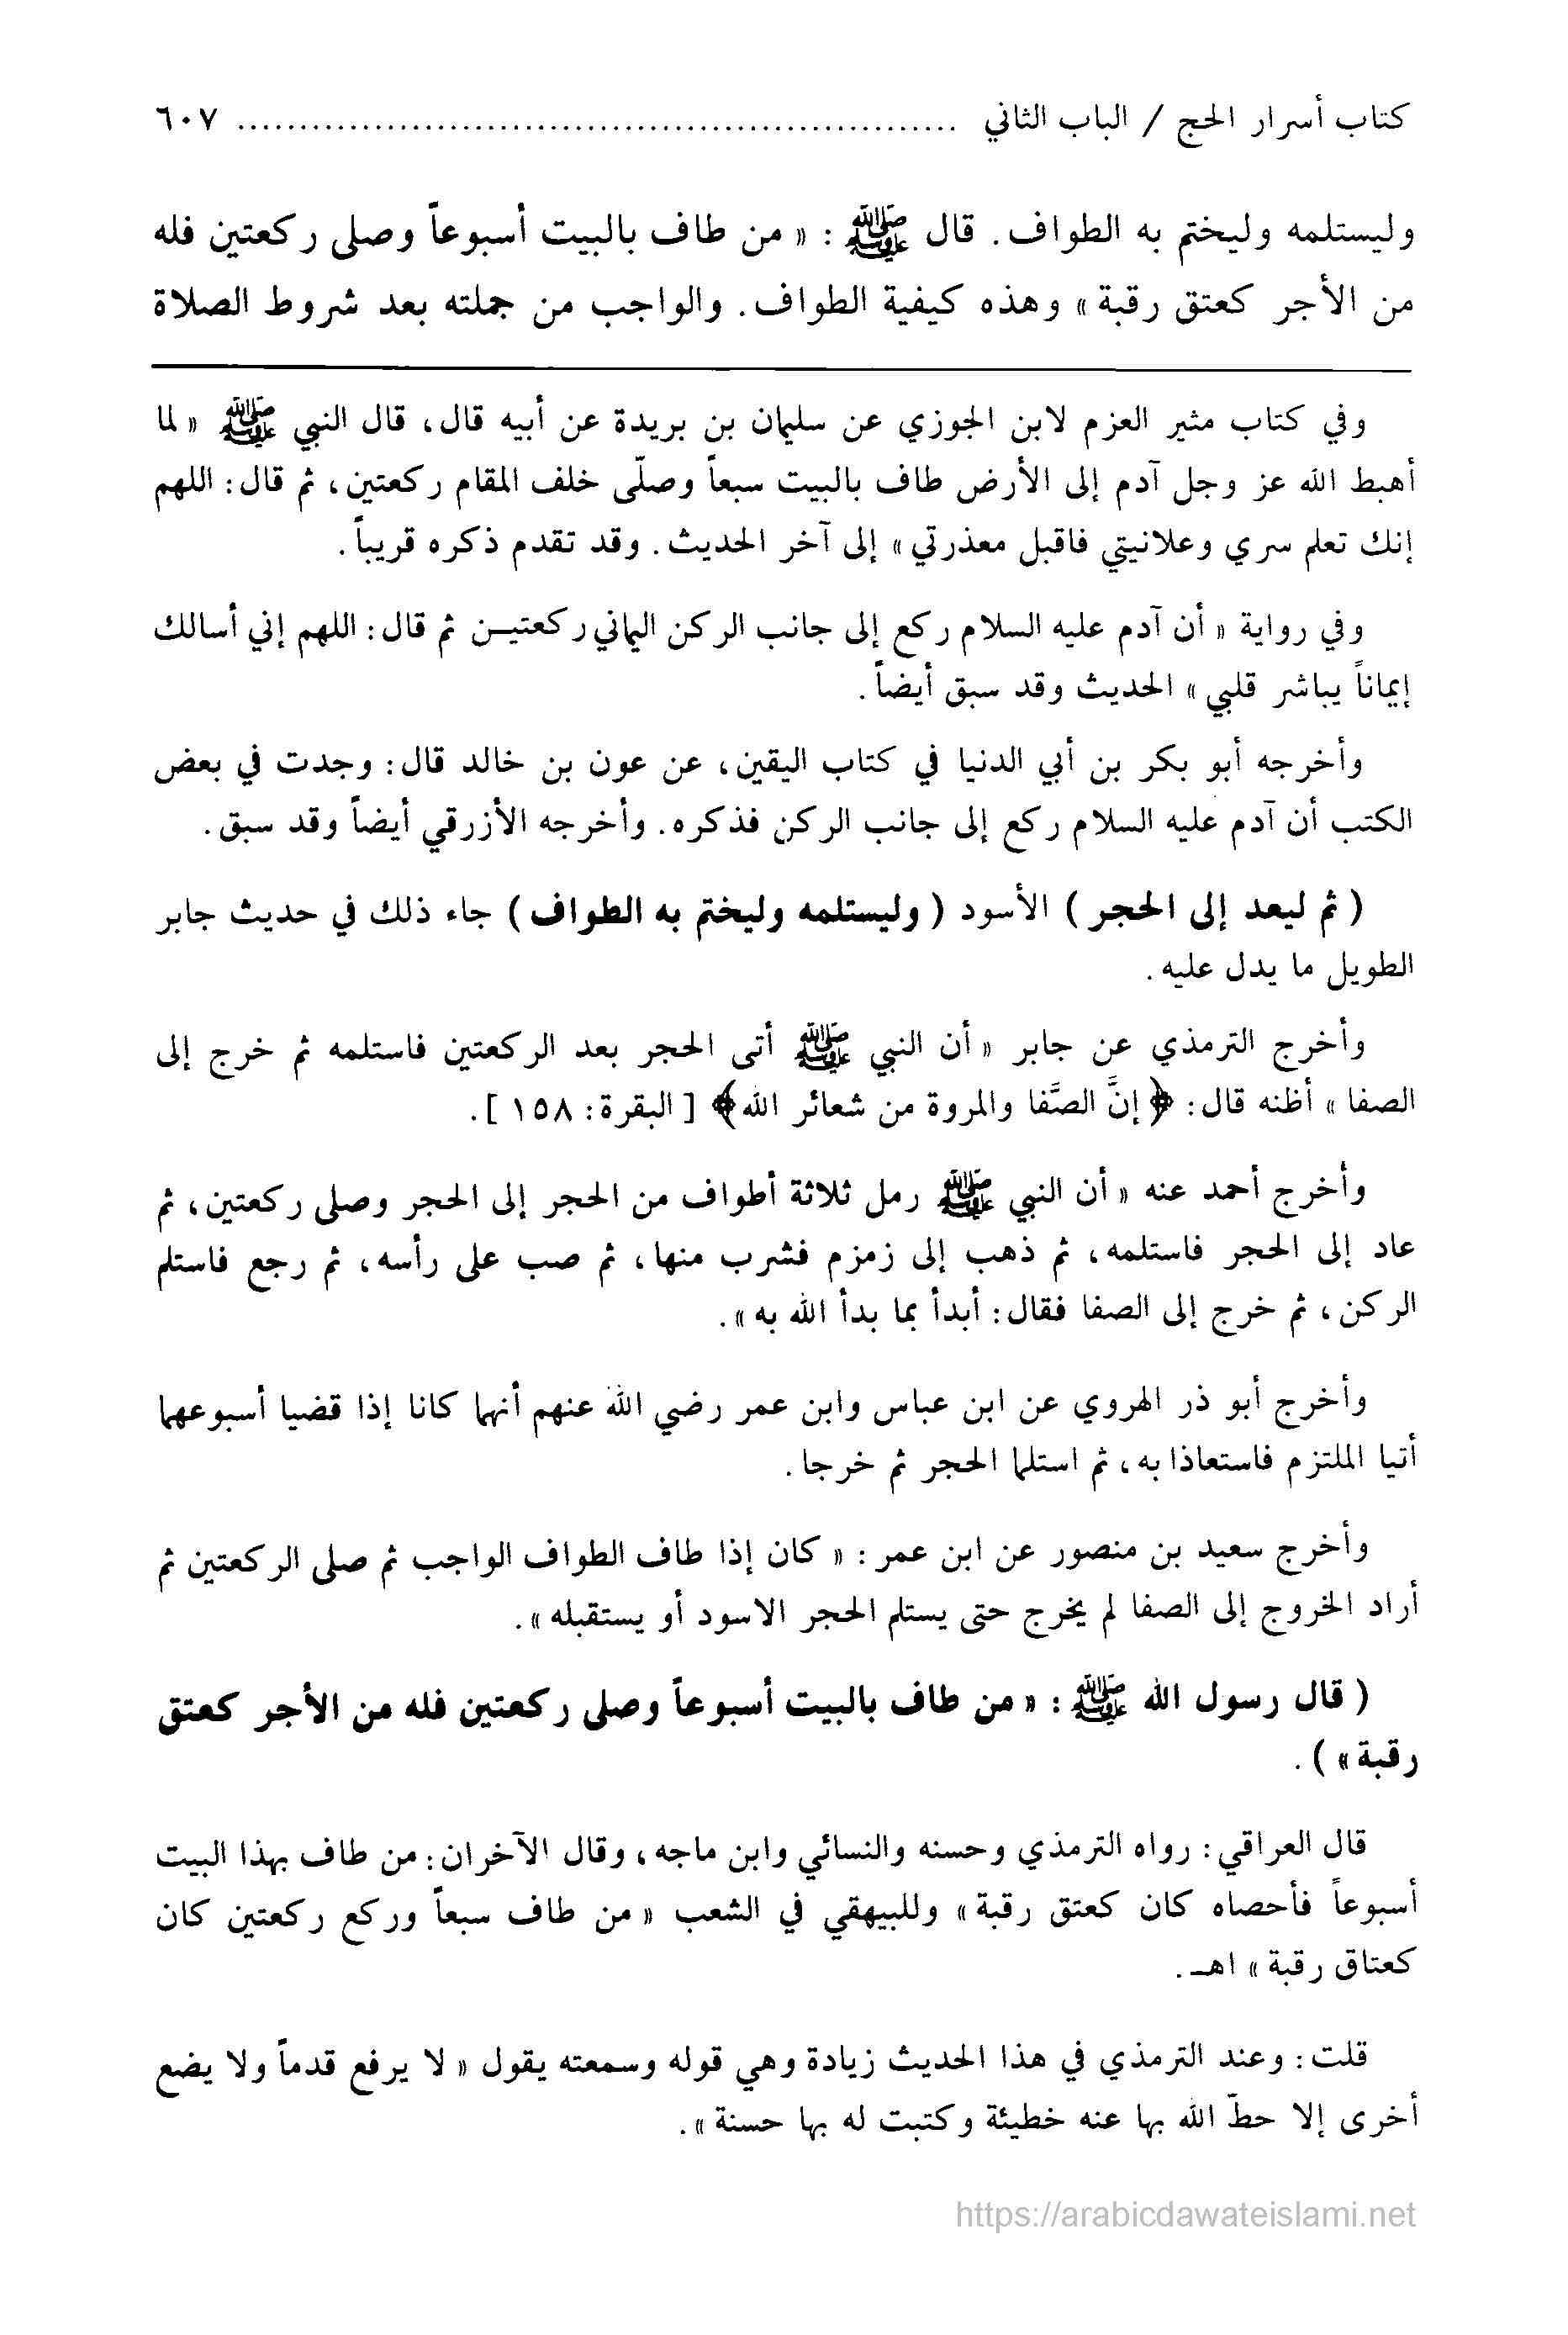 كتاب أسرار الحج / الباب الثاني ........................................................... ٦٠٧
وليستلمه وليختم به الطواف. قال ﷺ : « من طاف بالبيت أسبوعاً وصلى ركعتين فله
من الأجر كعتق رقبة » وهذه كيفية الطواف. والواجب من جملته بعد شروط الصلاة
وفي كتاب مثير العزم لابن الجوزي عن سليمان بن بريدة عن أبيه قال، قال النبي ﷺ « لما
أهبط الله عز وجل آدم إلى الأرض طاف بالبيت سبعاً وصلّى خلف المقام ركعتين، ثم قال: اللهم
إنك تعلم سري وعلانيتي فاقبل معذرتي » إلى آخر الحديث. وقد تقدم ذكره قريباً.
وفي رواية « أن آدم عليه السلام ركع إلى جانب الركن اليماني ركعتيـن ثم قال: اللهم إني أسالك
إيماناً يباشر قلبي » الحديث وقد سبق أيضاً.
وأخرجه أبو بكر بن أبي الدنيا في كتاب اليقين، عن عون بن خالد قال: وجدت في بعض
الكتب أن آدم عليه السلام ركع إلى جانب الركن فذكره. وأخرجه الأزرقي أيضاً وقد سبق.
( ثم ليعد إلى الحجر ) الأسود ( وليستلمه وليختم به الطواف ) جاء ذلك في حديث جابر
الطويل ما يدل عليه.
وأخرج الترمذي عن جابر « أن النبي ﷺ أتى الحجر بعد الركعتين فاستلمه ثم خرج إلى
الصفا » أظنه قال: ﴿ إنَّ الصَّفا والمروة من شعائر الله﴾ [ البقرة: ١٥٨ ].
وأخرج أحمد عنه « أن النبي ﷺ رمل ثلاثة أطواف من الحجر إلى الحجر وصلى ركعتين، ثم
عاد إلى الحجر فاستلمه، ثم ذهب إلى زمزم فشرب منها، ثم صب على رأسه، ثم رجع فاستلم
الركن، ثم خرج إلى الصفا فقال: أبدأ بما بدأ الله به ».
وأخرج أبو ذر الهروي عن ابن عباس وابن عمر رضي الله عنهم أنهما كانا إذا قضيا أسبوعهما
أتيا الملتزم فاستعاذا به، ثم استلما الحجر ثم خرجا.
وأخرج سعيد بن منصور عن ابن عمر : « كان إذا طاف الطواف الواجب ثم صلى الركعتين ثم
أراد الخروج إلى الصفا لم يخرج حتى يستلم الحجر الاسود أو يستقبله ».
( قال رسول الله ﷺ : « من طاف بالبيت أسبوعاً وصلى ركعتين فله من الأجر كعتق
رقبة » ) .
قال العراقي : رواه الترمذي وحسنه والنسائي وابن ماجه، وقال الآخران: من طاف بهذا البيت
أسبوعاً فأحصاه كان كعتق رقبة » وللبيهقي في الشعب « من طاف سبعاً وركع ركعتين كان
كعتاق رقبة » اهـ .
قلت: وعند الترمذي في هذا الحديث زيادة وهي قوله وسمعته يقول « لا يرفع قدماً ولا يضع
أخرى إلا حطّ الله بها عنه خطيئة وكتبت له بها حسنة ».
https://arabicdawateislami.net